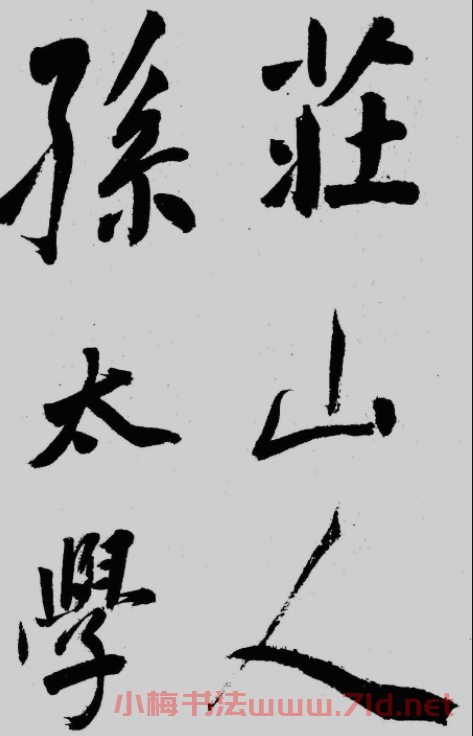 莊山人
孫太學
小梅书法www.7ld.net